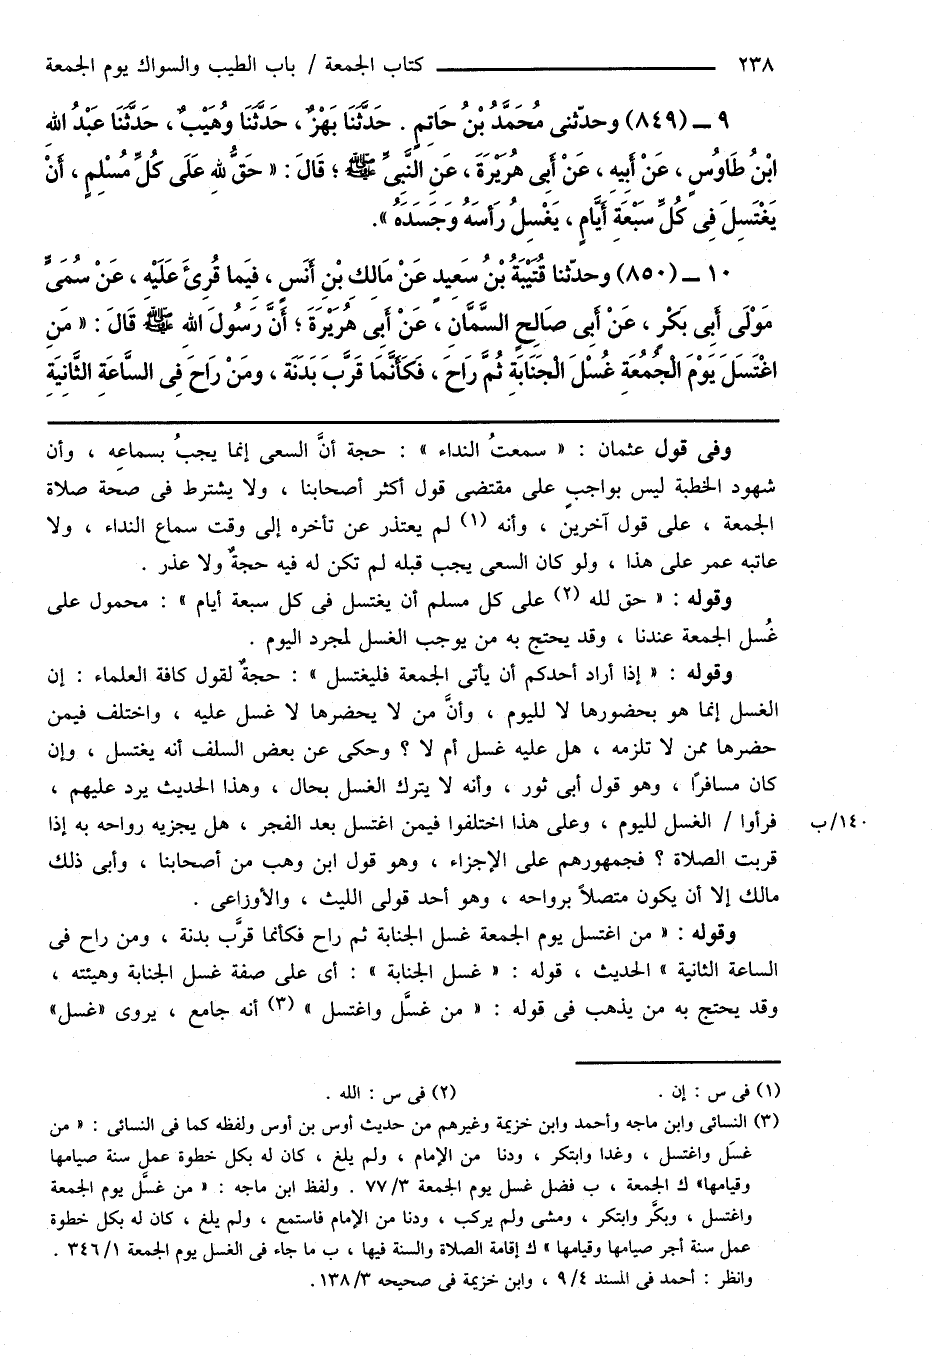 ٢٣٨ ــــــــــ كتاب الجمعة / باب الطيب والسواك يوم الجمعة
٩ ــ (٨٤٩) وحدّثنى مُحَمَّدُ بْنُ حَاتِمٍ . حَدَّثَنَا بَهْزٌ ، حَدَّثَنَا وُهَيْبٌ ، حَدَّثَنَا عَبْدُ اللهِ
ابْنُ طَاوُسٍ ، عَنْ أَبِيهِ ، عَنْ أَبِى هُرَيْرَةَ ، عَنِ النَّبِىِّ ﷺ ؛ قَالَ : « حَقٌّ للهِ عَلَى كُلِّ مُسْلِمٍ ، أَنْ
يَغْتَسِلَ فِى كُلِّ سَبْعَةِ أَيَّامٍ ، يَغْسِلُ رَأْسَهُ وَجَسَدَهُ ».
١٠ ــ (٨٥٠) وحدّثنا قُتَيْبَةُ بْنُ سَعِيدٍ عَنْ مَالِكِ بْنِ أَنَسٍ ، فَيمَا قُرِئَ عَلَيْهِ ، عَنْ سُمَىٍّ
مَوْلَى أَبِى بَكْرٍ ، عَنْ أَبِى صَالِحٍ السَّمَّانِ ، عَنْ أَبِى هُرَيْرَةَ ؛ أَنَّ رَسُولَ اللهِ ﷺ قَالَ : « مَنِ
اغْتَسَلَ يَوْمَ الْجُمُعَةِ غُسْلَ الْجَنَابَةِ ثُمَّ رَاحَ ، فَكَأَنَّمَا قَرَّبَ بَدَنَة ، ومَنْ رَاحَ فِى السَّاعَةِ الثَّانِيَةِ
وفى قول عثمان : « سمعتُ النداء » : حجة أنَّ السعى إنما يجبُ بسماعِه ، وأن
شهود الخطبة ليس بواجبٍ على مقتضى قول أكثر أصحابنا ، ولا يشترط فى صحة صلاة
الجمعة ، على قول آخرين ، وأنه (١) لم يعتذر عن تأخره إلى وقت سماع النداء ، ولا
عاتبه عمر على هذا ، ولو كان السعى يجب قبله لم تكن له فيه حجةٌ ولا عذر .
وقوله : « حق لله (٢) على كل مسلم أن يغتسل فى كل سبعة أيام » : محمول على
غُسل الجمعة عندنا ، وقد يحتج به من يوجب الغسل لمجرد اليوم .
وقوله : « إذا أراد أحدكم أن يأتى الجمعة فليغتسل » : حجةٌ لقول كافة العلماء : إن
الغسل إنما هو بحضورها لا لليوم ، وأنَّ من لا يحضرها لا غسل عليه ، واختلف فيمن
حضرها ممن لا تلزمه ، هل عليه غسل أم لا ؟ وحكى عن بعض السلف أنه يغتسل ، وإن
كان مسافرًا ، وهو قول أبى ثور ، وأنه لا يترك الغسل بحال ، وهذا الحديث يرد عليهم ،
١٤٠/ب فرأوا / الغسل لليوم ، وعلى هذا اختلفوا فيمن اغتسل بعد الفجر ، هل يجزيه رواحه به إذا
قربت الصلاة ؟ فجمهورهم على الإجزاء ، وهو قول ابن وهب من أصحابنا ، وأبى ذلك
مالك إلا أن يكون متصلاً برواحه ، وهو أحد قولى الليث ، والأوزاعى .
وقوله : « من اغتسل يوم الجمعة غسل الجنابة ثم راح فكأنما قرَّب بدنة ، ومن راح فى
الساعة الثانية » الحديث ، قوله : « غسل الجنابة » : أى على صفة غسل الجنابة وهيئته ،
وقد يحتج به من يذهب فى قوله : « من غسَّل واغتسل » (٣) أنه جامع ، يروى «غسل»
(١) فى س : إن . (٢) فى س : الله .
(٣) النسائى وابن ماجه وأحمد وابن خزيمة وغيرهم من حديث أوس بن أوس ولفظه كما فى النسائى : « من
غسَل واغتسل ، وغدا وابتكر ، ودنا من الإمام ، ولم يلغ ، كان له بكل خطوة عمل سنة صيامها
وقيامها» ك الجمعة ، ب فضل غسل يوم الجمعة ٣/ ٧٧ . ولفظ ابن ماجه : « من غسَّل يوم الجمعة
واغتسل ، وبكَّر وابتكر ، ومشى ولم يركب ، ودنا من الإمام فاستمع ، ولم يلغ ، كان له بكل خطوة
عمل سنة أجر صيامها وقيامها » ك إقامة الصلاة والسنة فيها ، ب ما جاء فى الغسل يوم الجمعة ١/ ٣٤٦ .
وانظر : أحمد فى المسند ٤/ ٩ ، وابن خزيمة فى صحيحه ٣/ ١٣٨ .